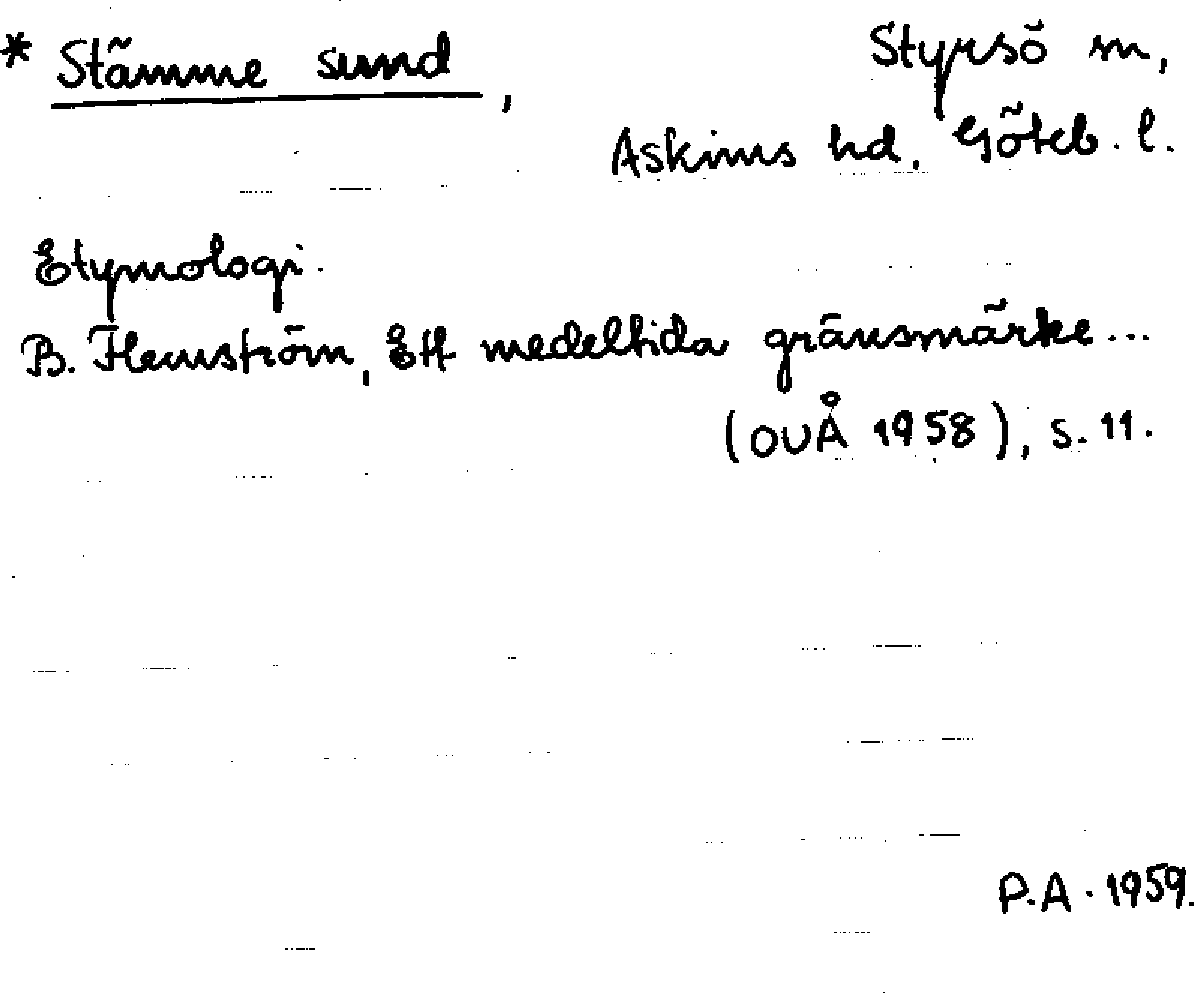 * Stämme sund, Styrsö sn,
Askims hd. Göteb. l.
Etymologi.
B. Hernström, Ett medeltida gränsmärke...
(OUÅ 1958), s. 11.
P.A. 1959.